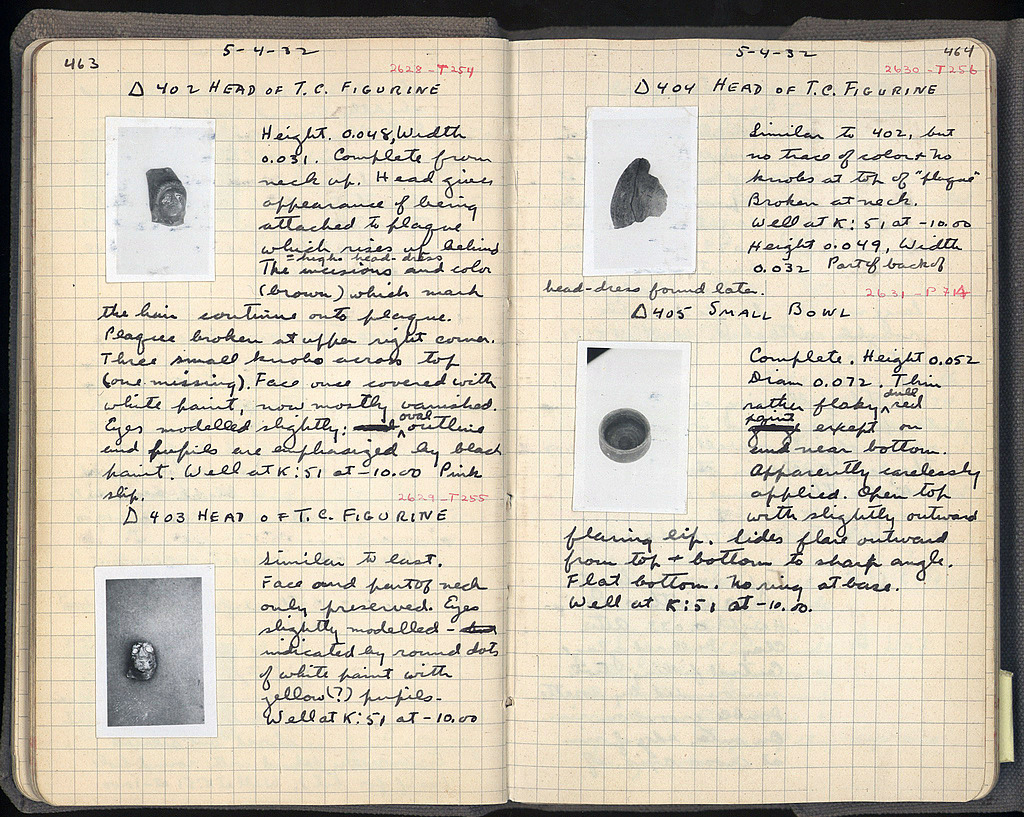 463
5-4-32
2628-T254
Δ 402 HEAD OF T.C. FIGURINE
Height. 0.048, Width
0.031. Complete from
neck up. Head gives
appearance of being
attached to plaque
which rises up behind
= high head-dress
The incisions and color
(brown) which mark
the hair continue onto plaque.
Plaque broken at upper right corner.
Three small knobs across top
(one missing). Face once covered with
white paint, now mostly vanished.
Eyes modelled slightly: oval outline
and pupils are emphasized by black
paint. Well at K:51 at -10.00 Pink
slip.
2629-T255
Δ 403 HEAD OF T.C. FIGURINE
Similar to last.
Face and part of neck
only preserved. Eyes
slightly modelled -
indicated by round dots
of white paint with
yellow(?) pupils-
Well at K:51 at -10.00
5-4-32
464
2630-T256
Δ 404 HEAD OF T.C. FIGURINE
Similar to 402, but
no trace of color + no
knobs at top of "plaque"
Broken at neck.
Well at K:51 at -10.00
Height 0.049, Width
0.032 Part of back of
head-dress found later.
2631-P714
Δ 405 SMALL BOWL
Complete. Height 0.052
Diam 0.072. Thin
rather flaky dull red
paint except on
and near bottom.
Apparently carelessly
applied. Open top
with slightly outward
flaring lip. Sides flare outward
from top + bottom to sharp angle.
Flat bottom. No ring at base.
Well at K:51 at -10.00.